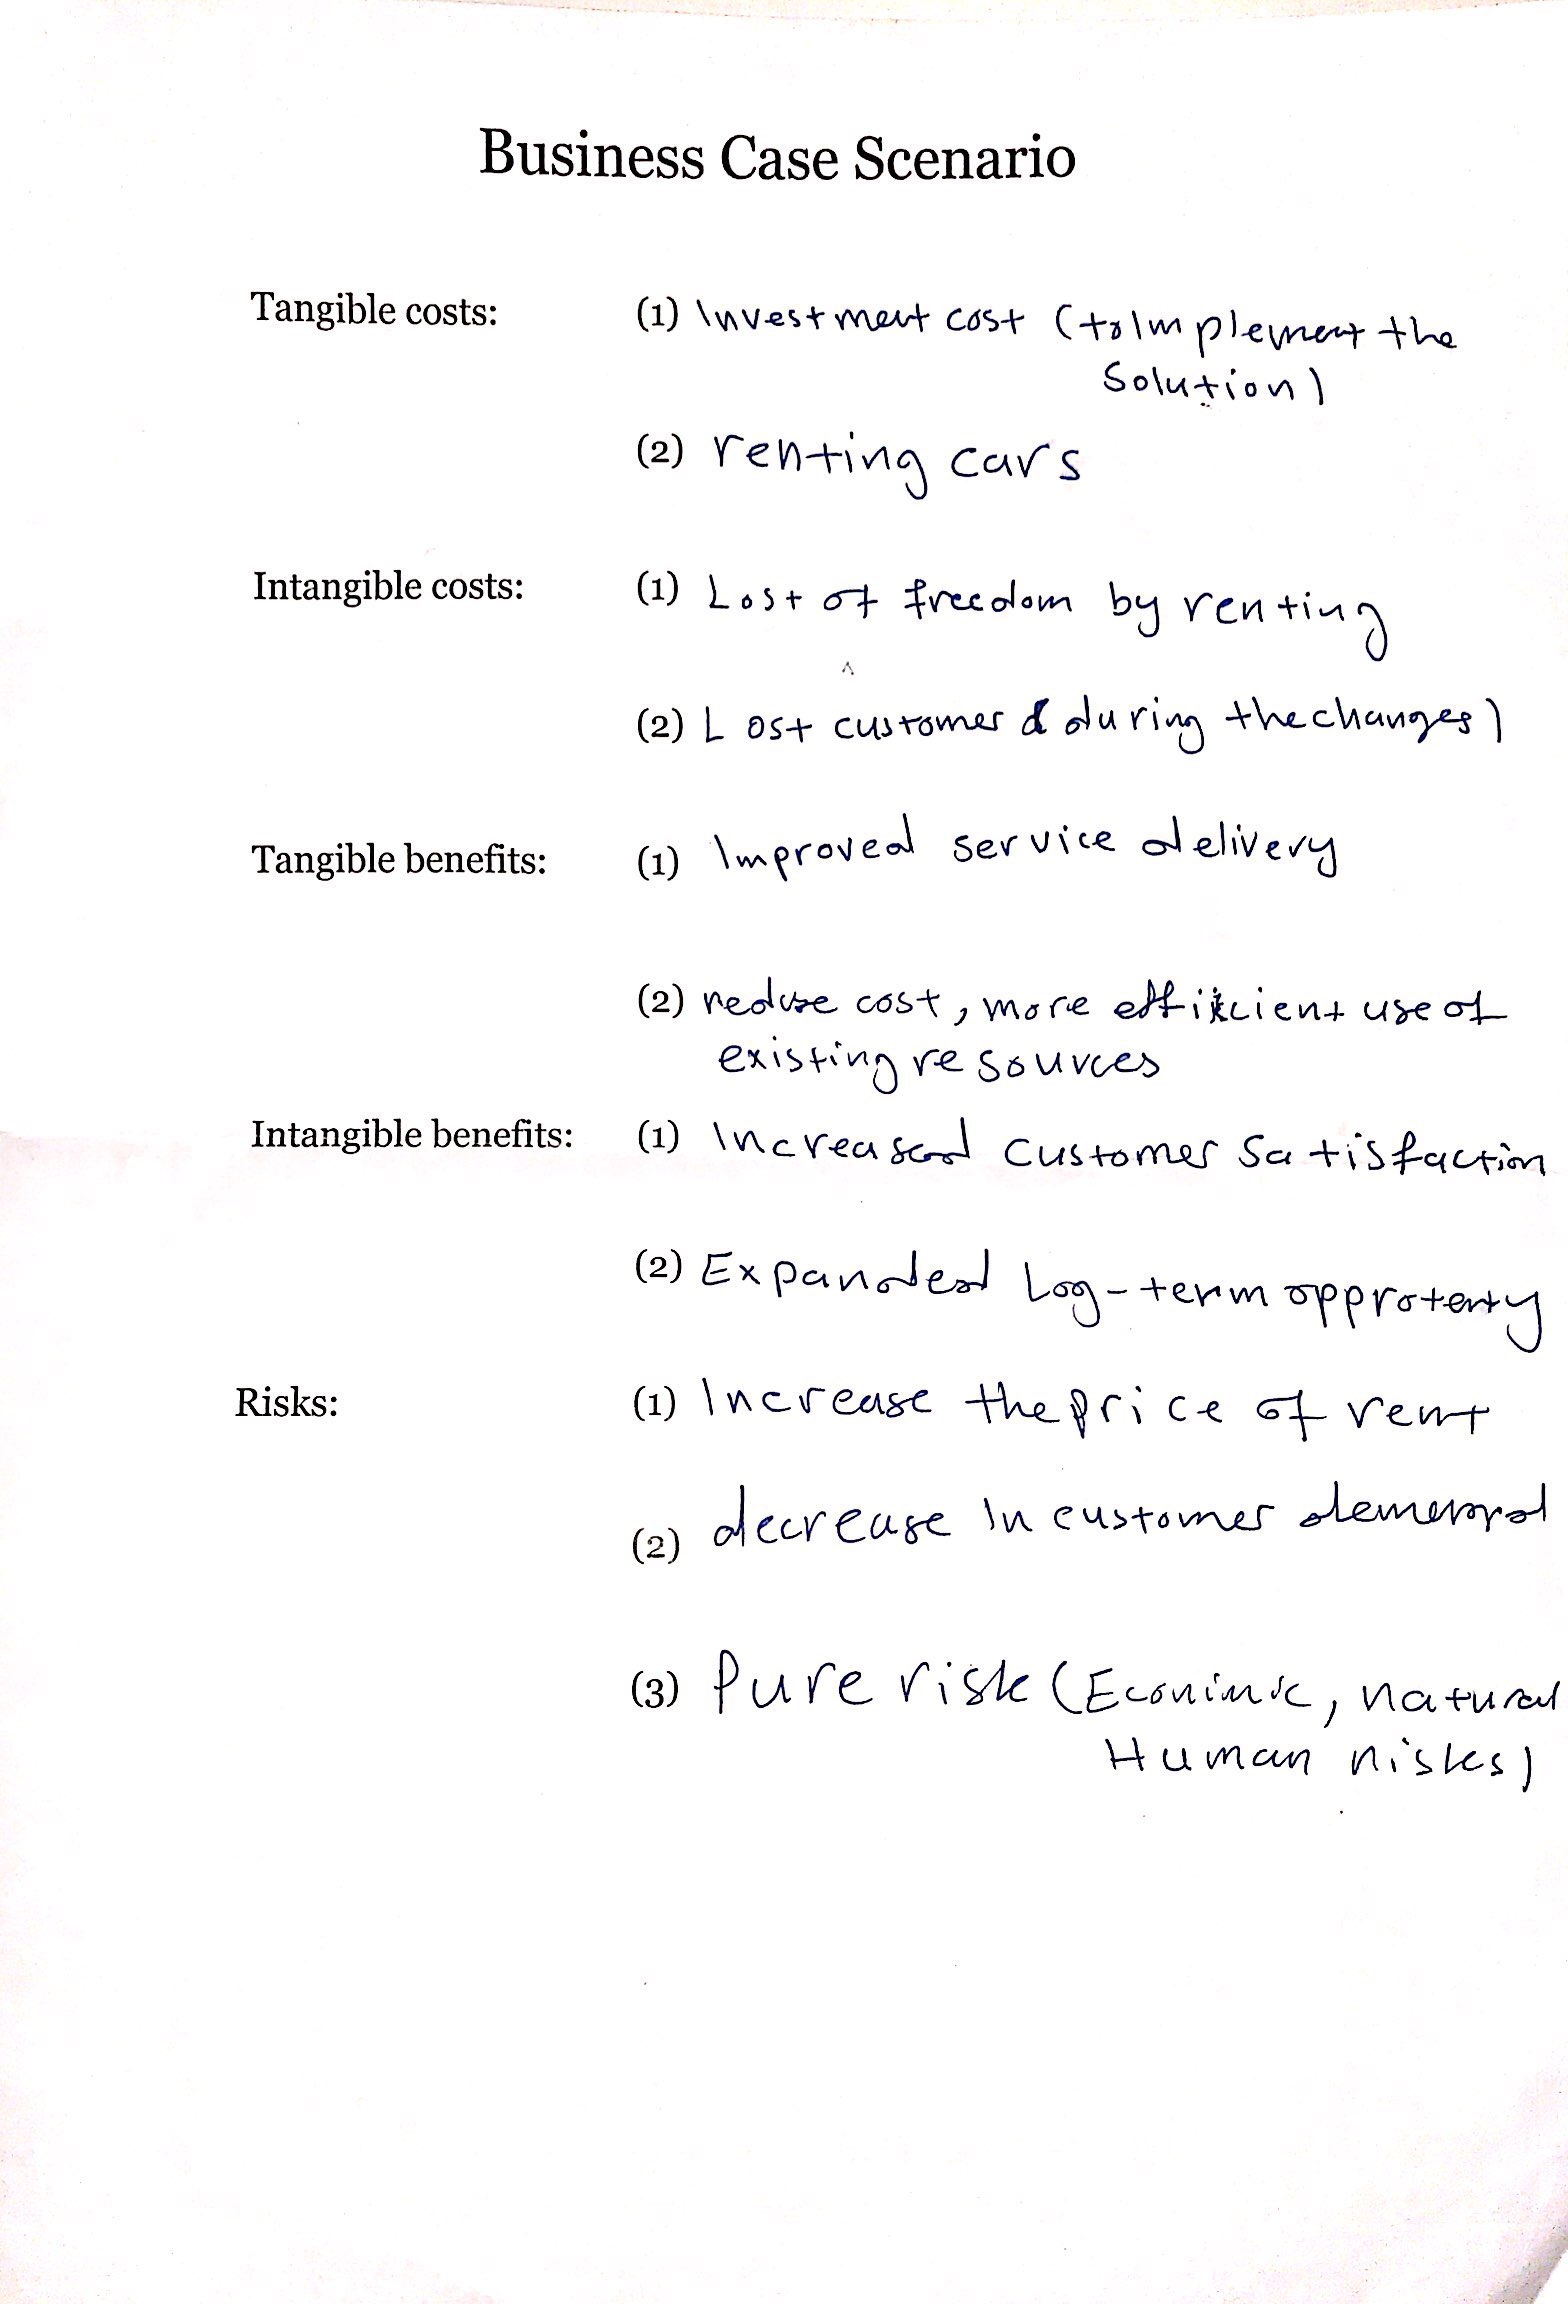 Business Case Scenario
Tangible costs: (1) Investment cost (to Implement the
Solution)
(2) renting cars
Intangible costs: (1) Lost of freedom by renting
(2) Lost customer (during the changes)
Tangible benefits: (1) Improved service delivery
(2) reduse cost, more efficient use of
existing resources
Intangible benefits: (1) Increased customer satisfaction
(2) Expanded Log-term opprotenty
Risks: (1) Increase the price of rent
(2) decrease In customer demend
(3) Pure risk (Econimic, natural
Human risks)